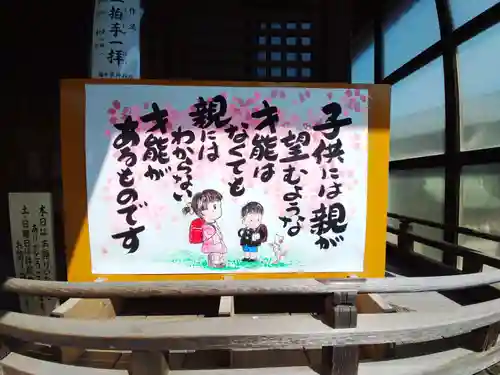 子供には親が
望むような
才能は
なくても
親には
わからない
才能が
あるものです
一拍手一拝
本日は
お詣り
土・日